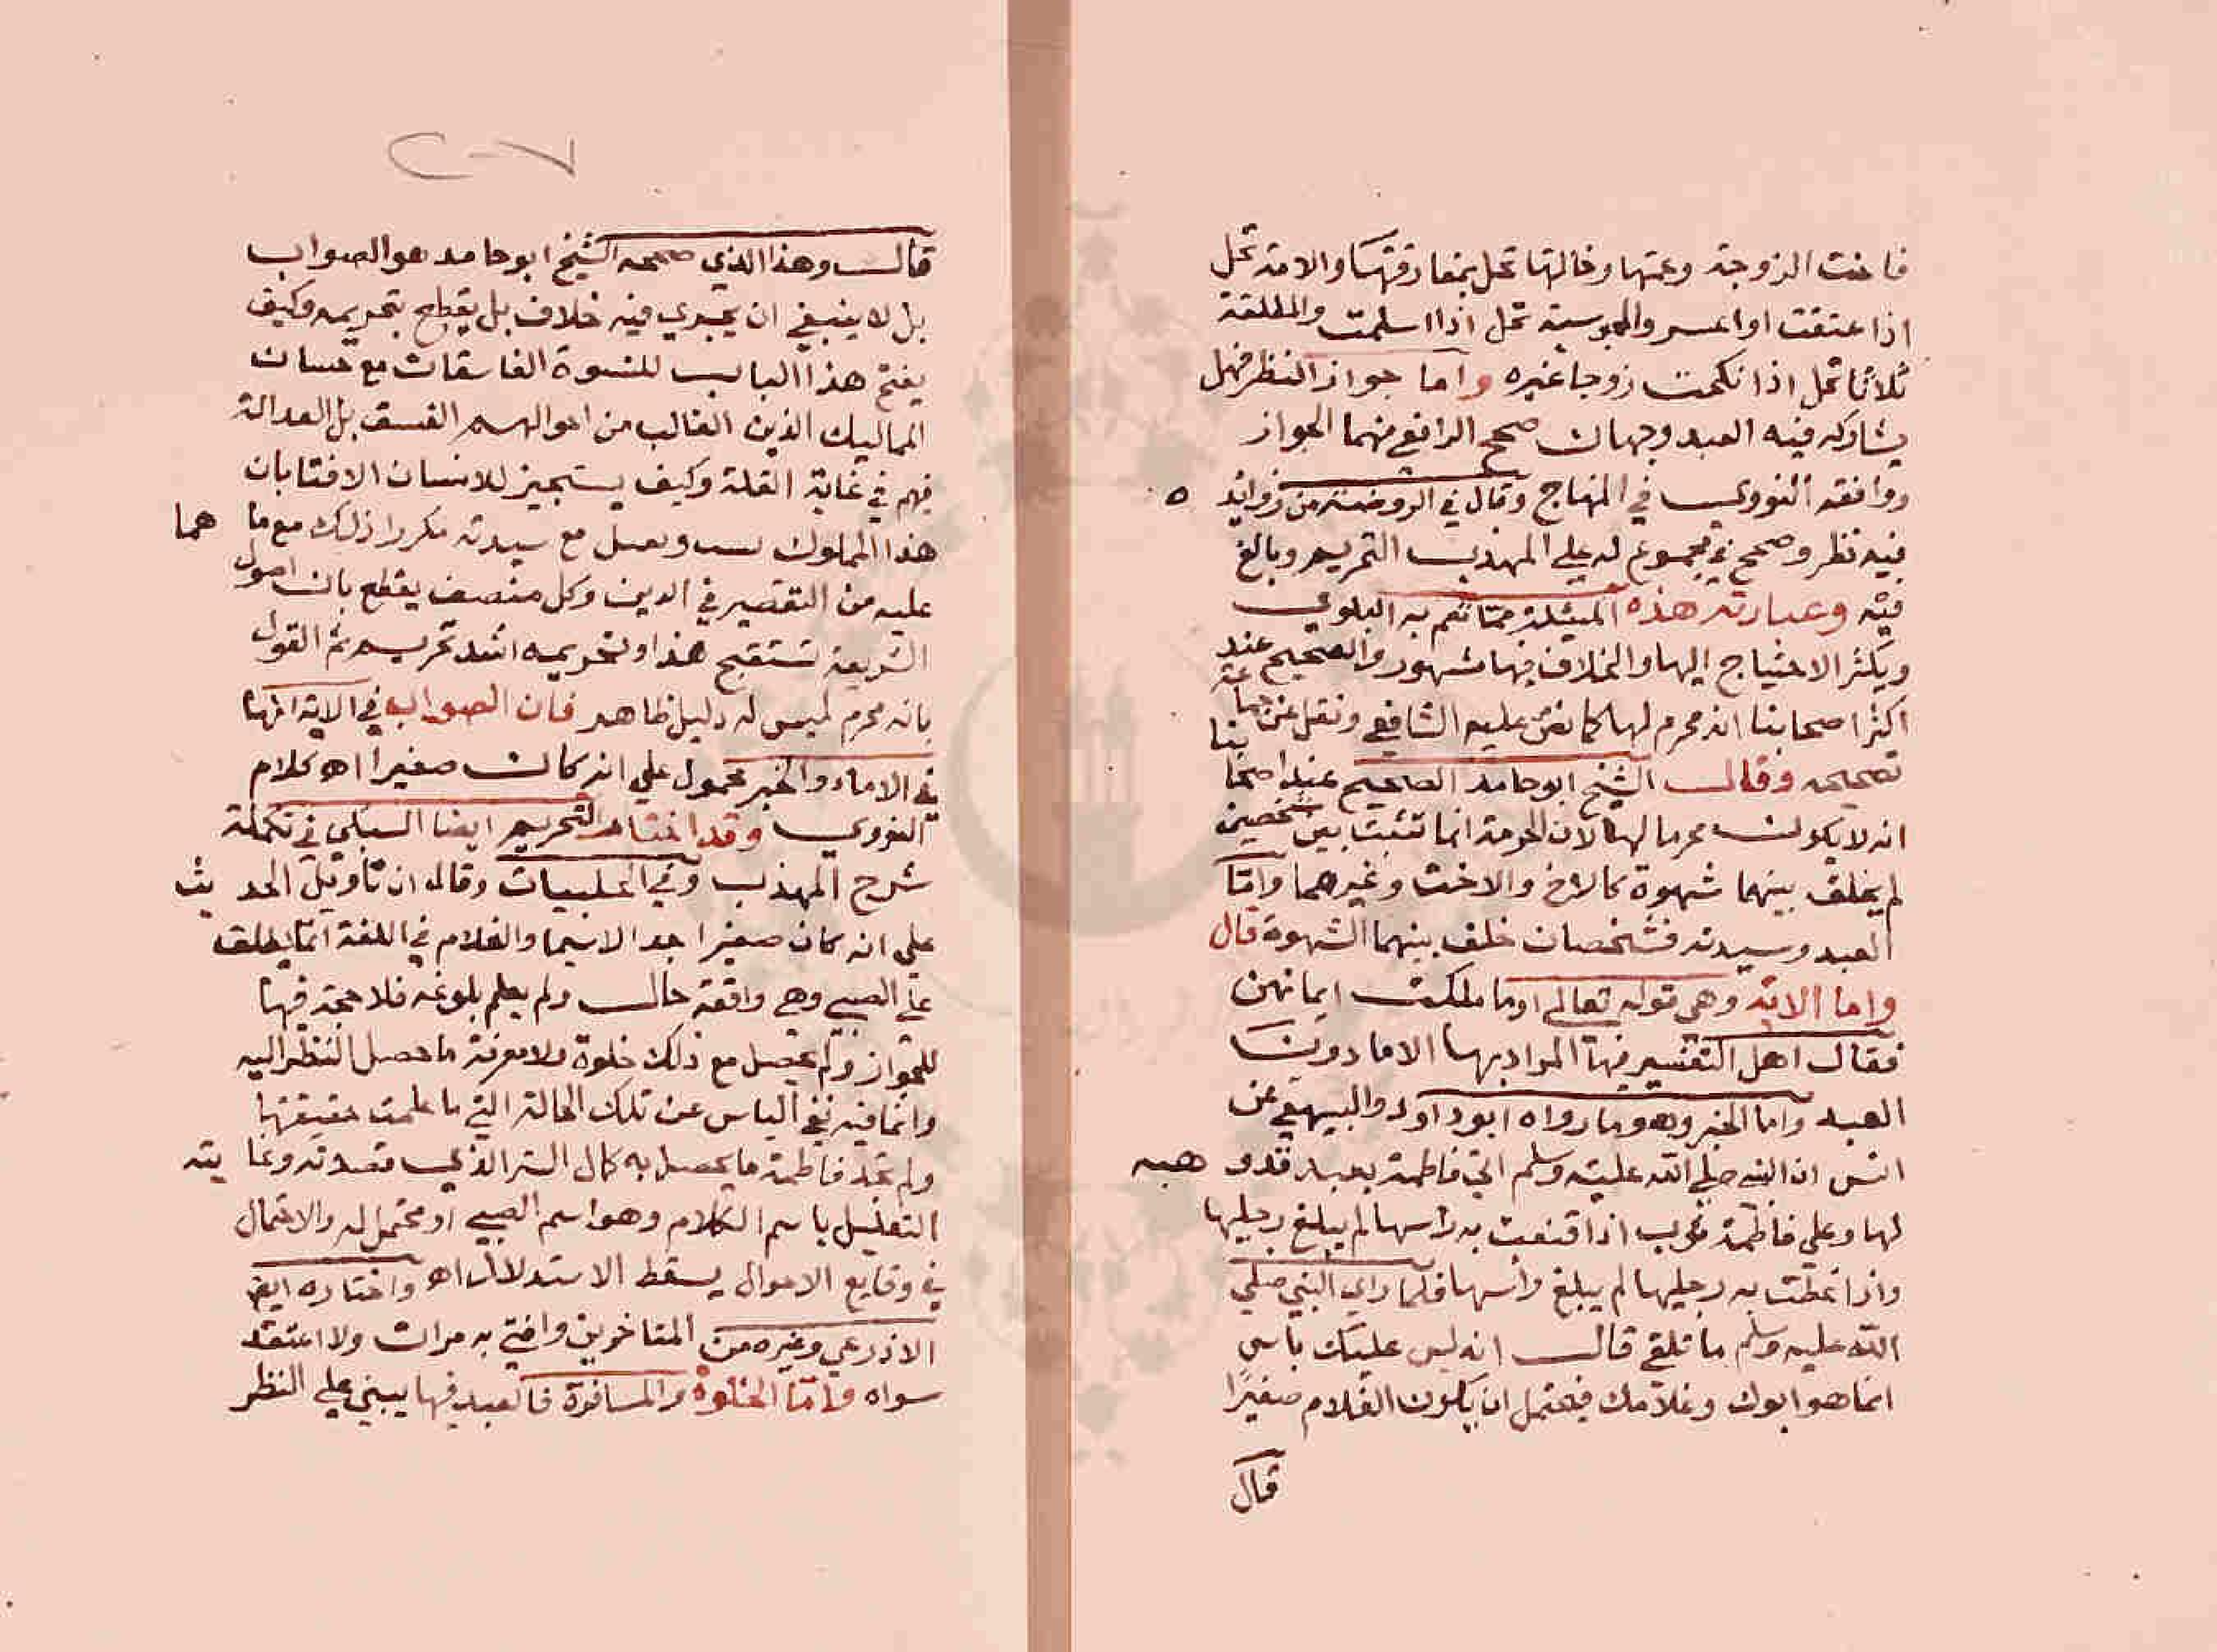 فاخت الزوجة وعمتها وخالتها تحل بمفارقتها والامة تحل
اذا عتقت او اعسر والمجوسية تحل اذا اسلمت والمطلقة
ثلاثا تحل اذا نكحت زوجا غيره واما جواز النظر فهل
يشاركه فيه العبد وجهان صحح الرافعي منهما الجواز
ووافقه النووي في المنهاج وقال في الروضة من زوايده
فيه نظر وصحح في مجموع له علي المهذب التحريم وبالغ
فيه وعبارته هذه المسئلة مما تعم به البلوي
ويكثر الاحتياج اليها والخلاف فيها مشهور والصحيح عند
اكثر اصحابنا انه محرم لها كما نص عليه الشافعي ونقل عن جماعة
تصحيحه وقال الشيخ ابو حامد الصحيح عند اصحابنا
انه لا يكون محرما لها لان الحرمة انما تثبت بين شخصين
لم يخلق بينهما شهوة كالاخ والاخت وغيرهما واما
العبد وسيدته فشخصان خلق بينهما الشهوة قال
واما الاية وهي قوله تعالى او ما ملكت ايمانهن
فقال اهل التفسير فيها المراد بها الاما دون
العبد واما الخبر وهو ما رواه ابو داود والبيهقي عن
انس ان النبي صلي الله عليه وسلم اتي فاطمة بعبد قد وهبه
لها وعلي فاطمة ثوب اذا قنعت به راسها لم يبلغ رجليها
واذا غطت به رجليها لم يبلغ رأسها فلما راي النبي صلي
الله عليه وسلم ما تلقي قال انه ليس عليك باس
انما هو ابوك وغلامك فيحتمل ان يكون الغلام صغيرا
قال
٢٠٧
قال وهذا الذي صححه الشيخ ابو حامد هو الصواب
بل لا ينبغي ان يجري فيه خلاف بل يقطع بتحريمه وكيف
يفتح هذا الباب للنسوة الفاسقات مع حسان
المماليك الذين الغالب من احوالهم الفسق بل العدالة
فيهم في غاية القلة وكيف يستجيز للانسان الافتا بان
هذا المملوك يبيت ويقيل مع سيدته مكررا ذلك مع ما هما
عليه من التقصير في الدين وكل منصف يقطع بان اصول
الشريعة تستقبح هذا وتحريمه اشد تحريم ثم القول
بانه محرم ليس له دليل ظاهر فان الصواب في الاية انها
في الاماء والخبر محمول علي انه كان صغيرا اه كلام
النووي وقد اختار التحريم ايضا السبكي في تكملة
شرح المهذب وفي الحلبيات وقال ان تأويل الحديث
علي انه كان صغيرا جدا لاسيما والغلام في اللغة انما يطلق
علي الصبي وهي واقعة حال ولم يعلم بلوغه فلا حجة فيها
للجواز ولم يحصل مع ذلك خلوة ولا معرفة ما حصل النظر اليه
وانما فيه نفي الباس عن تلك الحالة التي ما علمت حقيقتها
ولم تجد فاطمة ما يحصل به كمال الستر الذي قصدته وغايته
التعليل باسم الغلام وهو اسم الصبي او محتمل له والاحتمال
في وقايع الاحوال يسقط الاستدلال اه واختاره ايض
الاذرعي وغيره من المتاخرين وافتي به مرات ولا اعتقد
سواه واما الخلوة والمسافرة فالعبد فيها يبني علي النظر